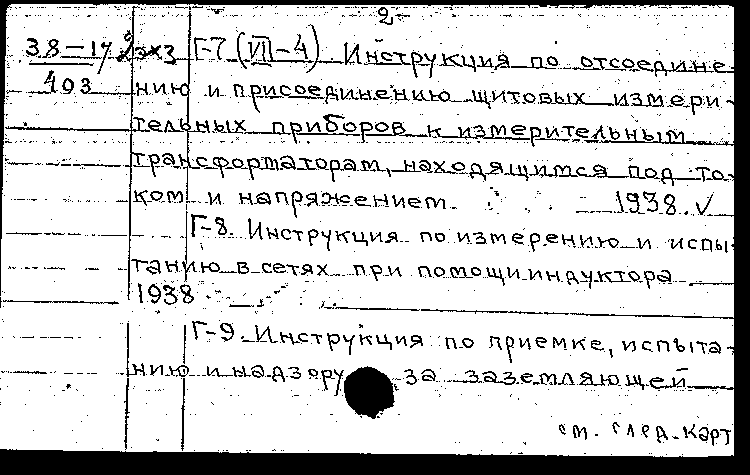 2-
38-17 2экз Г-7 (VII-4) Инструкция по отсоедине-
403 нию и присоединению щитовых измери-
тельных приборов к измерительным
трансформаторам, находящимся под то-
ком и напряжением. 1938. ✓
Г-8. Инструкция по измерению и испы-
танию в сетях при помощи индуктора
1938
Г-9. Инструкция по приемке, испыта-
нию и надзору за заземляющей
см. след. карт